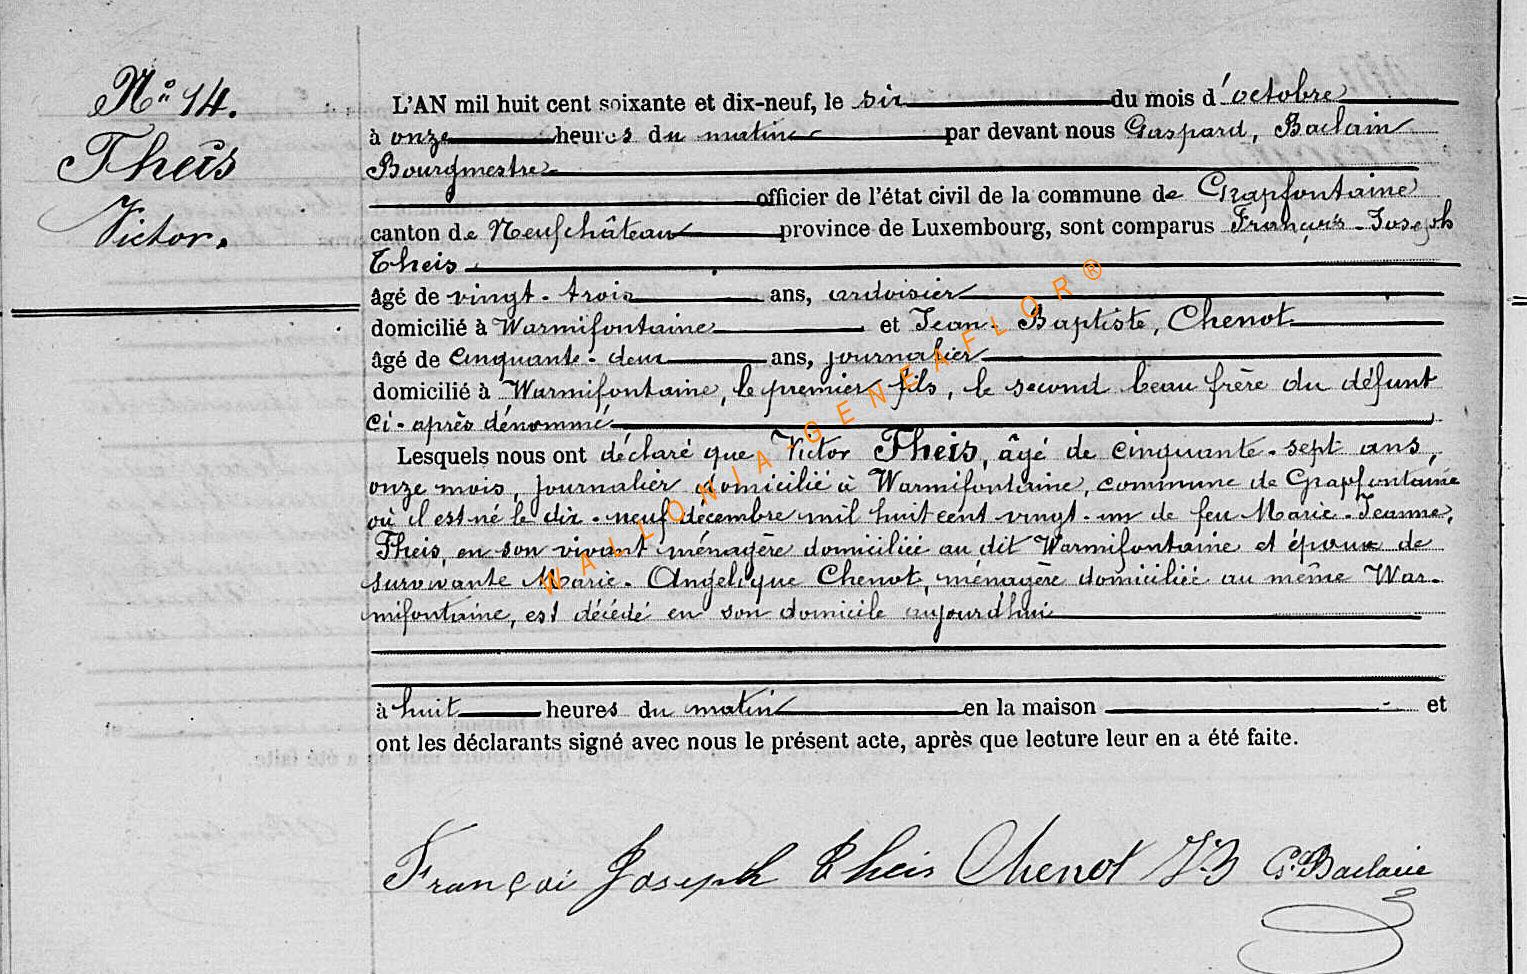 N° 14.
Theis
Victor.
L'AN mil huit cent soixante et dix-neuf, le six du mois d'octobre
à onze heures du matin par devant nous Gaspard, Baclain
Bourgmestre
officier de l'état civil de la commune de Grapfontaine
canton de Neufchâteau province de Luxembourg, sont comparus François-Joseph
Theis
âgé de vingt-trois ans, ardoisier
domicilié à Warmifontaine et Jean-Baptiste, Chenot
âgé de cinquante-deux ans, journalier
domicilié à Warmifontaine, le premier fils, le second beau frère du défunt
ci-après dénommé
Lesquels nous ont déclaré que Victor Theis, âgé de cinquante-sept ans,
onze mois, journalier domicilié à Warmifontaine, commune de Grapfontaine
où il est né le dix-neuf décembre mil huit cent vingt-un de feu Marie-Jeanne,
Theis, en son vivant ménagère domiciliée au dit Warmifontaine et époux de
survivante Marie-Angélique Chenot, ménagère domiciliée au même War-
mifontaine, est décédé en son domicile aujourd'hui
à huit heures du matin en la maison et
ont les déclarants signé avec nous le présent acte, après que lecture leur en a été faite.
Françoi Joseph Theis Chenot J-B G. Baclain
WALLONIA-GENEAFLOR®